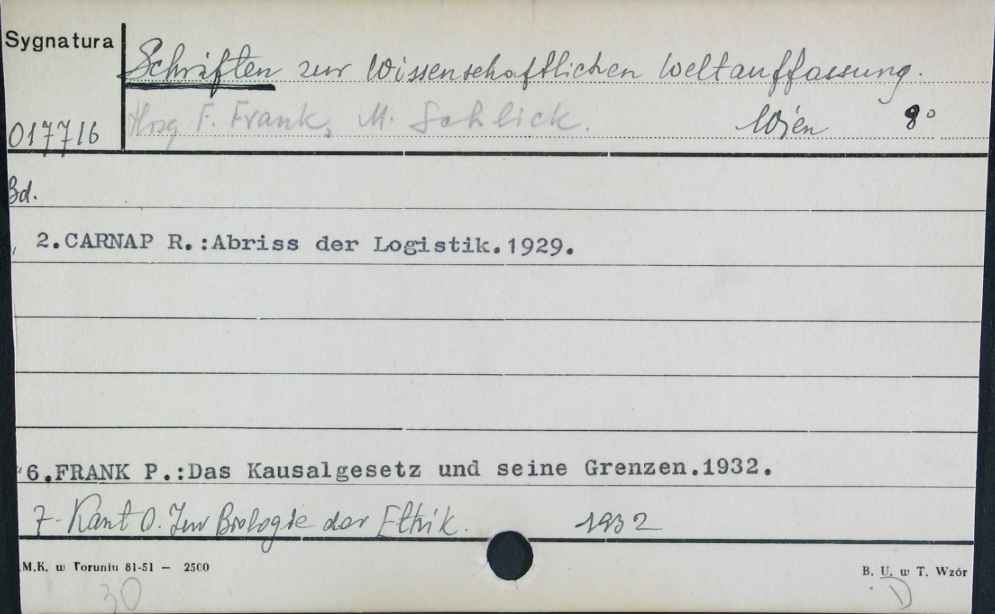 Sygnatura
Schriften zur Wissenschaftlichen Weltauffassung.
017716
Hrsg F. Frank, M. Schlick. Wien 8°
Bd.
2.CARNAP R.:Abriss der Logistik.1929.
6.FRANK P.:Das Kausalgesetz und seine Grenzen.1932.
7. Kant O. Zur Biologie der Ethik. 1932
M.K. w Toruniu 81-51 — 2500
B. U. w T. Wzór
30
D